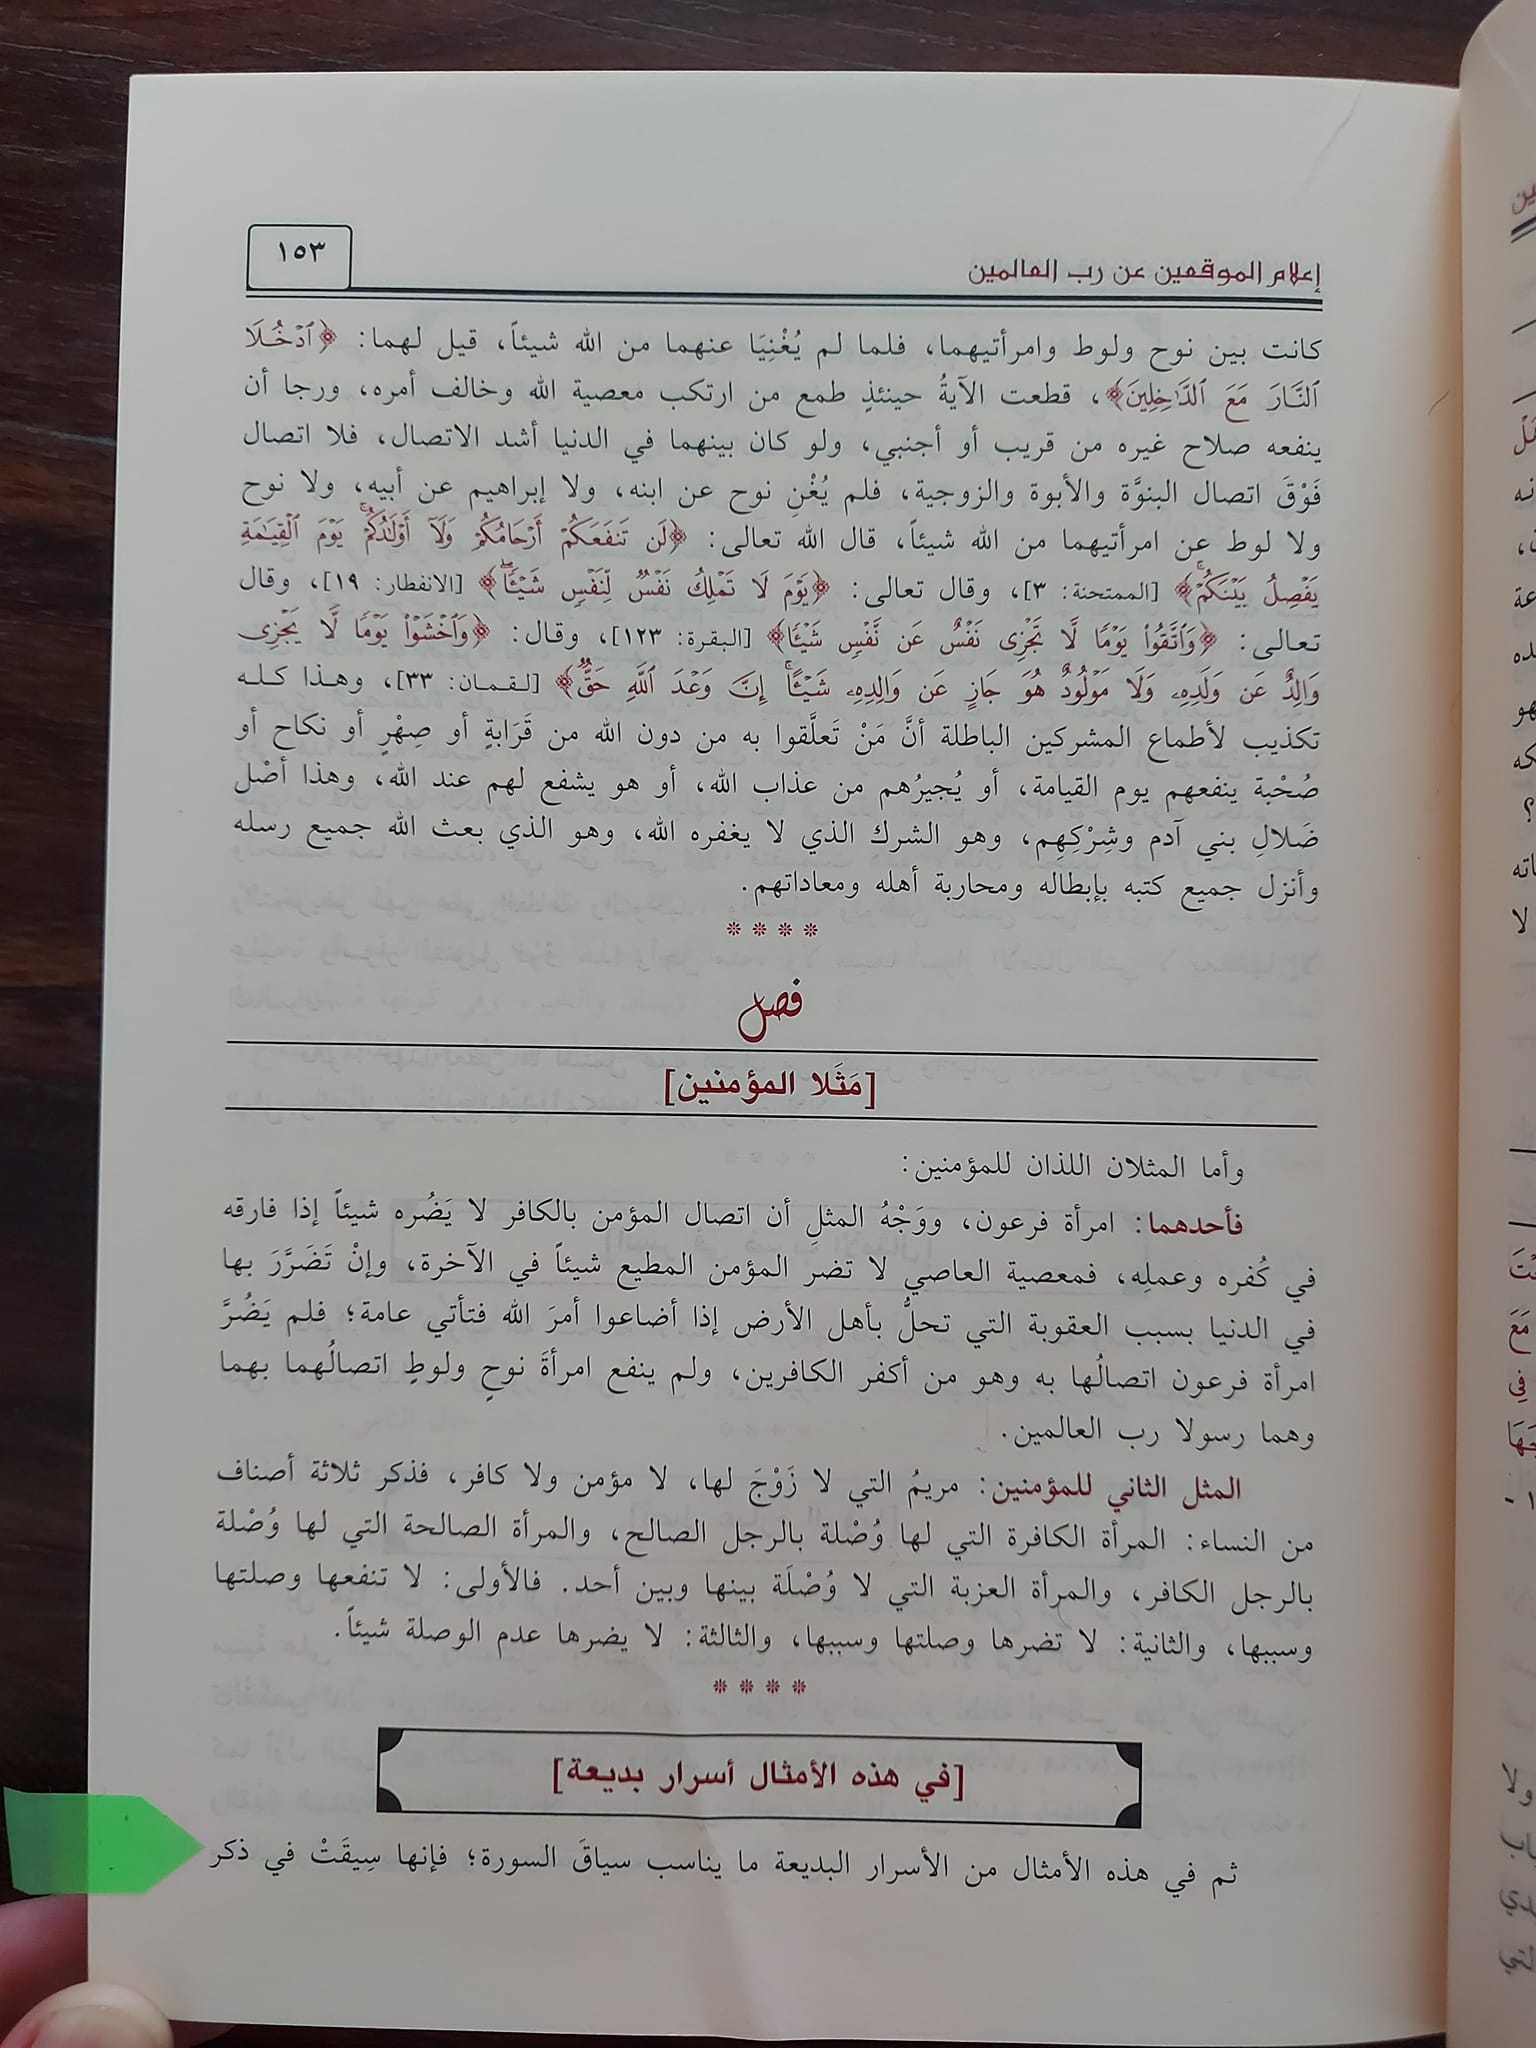 إعلام الموقعين عن رب العالمين
١٥٣
كانت بين نوح ولوط وامرأتيهما، فلما لم يُغْنِيَا عنهما من الله شيئاً، قيل لهما: ﴿ٱدۡخُلَا
ٱلنَّارَ مَعَ ٱلدَّٰخِلِينَ﴾، قطعت الآيةُ حينئذٍ طمع من ارتكب معصية الله وخالف أمره، ورجا أن
ينفعه صلاح غيره من قريب أو أجنبي، ولو كان بينهما في الدنيا أشد الاتصال، فلا اتصال
فَوْقَ اتصال البنوَّة والأبوة والزوجية، فلم يُغْنِ نوح عن ابنه، ولا إبراهيم عن أبيه، ولا نوح
ولا لوط عن امرأتيهما من الله شيئاً، قال الله تعالى: ﴿لَن تَنفَعَكُمۡ أَرۡحَامُكُمۡ وَلَآ أَوۡلَٰدُكُمۡۚ يَوۡمَ ٱلۡقِيَٰمَةِ
يَفۡصِلُ بَيۡنَكُمۡۚ﴾ [الممتحنة: ٣]، وقال تعالى: ﴿يَوۡمَ لَا تَمۡلِكُ نَفۡسٞ لِّنَفۡسٖ شَيۡـٔٗاۖ﴾ [الانفطار: ١٩]، وقال
تعالى: ﴿وَٱتَّقُواْ يَوۡمٗا لَّا تَجۡزِى نَفۡسٌ عَن نَّفۡسٖ شَيۡـٔٗا﴾ [البقرة: ١٢٣]، وقال: ﴿وَٱخۡشَوۡاْ يَوۡمٗا لَّا يَجۡزِى
وَالِدٌ عَن وَلَدِهِۦ وَلَا مَوۡلُودٌ هُوَ جَازٍ عَن وَالِدِهِۦ شَيۡـًٔاۚ إِنَّ وَعۡدَ ٱللَّهِ حَقّٞۖ﴾ [لقمان: ٣٣]، وهذا كله
تكذيب لأطماع المشركين الباطلة أنَّ مَنْ تَعلَّقوا به من دون الله من قَرَابةٍ أو صِهْرٍ أو نكاح أو
صُحْبة ينفعهم يوم القيامة، أو يُجيرُهم من عذاب الله، أو هو يشفع لهم عند الله، وهذا أصْل
ضَلالِ بني آدم وشِرْكِهِم، وهو الشرك الذي لا يغفره الله، وهو الذي بعث الله جميع رسله
وأنزل جميع كتبه بإبطاله ومحاربة أهله ومعاداتهم.
فصل
[مَثَلا المؤمنين]
وأما المثلان اللذان للمؤمنين:
فأحدهما: امرأة فرعون، ووَجْهُ المثلِ أن اتصال المؤمن بالكافر لا يَضُره شيئاً إذا فارقه
في كُفره وعملِه، فمعصية العاصي لا تضر المؤمن المطيع شيئاً في الآخرة، وإنْ تَضَرَّرَ بها
في الدنيا بسبب العقوبة التي تحلُّ بأهل الأرض إذا أضاعوا أمرَ الله فتأتي عامة؛ فلم يَضُرَّ
امرأة فرعون اتصالُها به وهو من أكفر الكافرين، ولم ينفع امرأةَ نوحٍ ولوطٍ اتصالُهما بهما
وهما رسولا رب العالمين.
المثل الثاني للمؤمنين: مريمُ التي لا زَوْجَ لها، لا مؤمن ولا كافر، فذكر ثلاثة أصناف
من النساء: المرأة الكافرة التي لها وُصْلة بالرجل الصالح، والمرأة الصالحة التي لها وُصْلة
بالرجل الكافر، والمرأة العزبة التي لا وُصْلَة بينها وبين أحد. فالأولى: لا تنفعها وصلتها
وسببها، والثانية: لا تضرها وصلتها وسببها، والثالثة: لا يضرها عدم الوصلة شيئاً.
[في هذه الأمثال أسرار بديعة]
ثم في هذه الأمثال من الأسرار البديعة ما يناسب سياقَ السورة؛ فإنها سِيقَتْ في ذكر